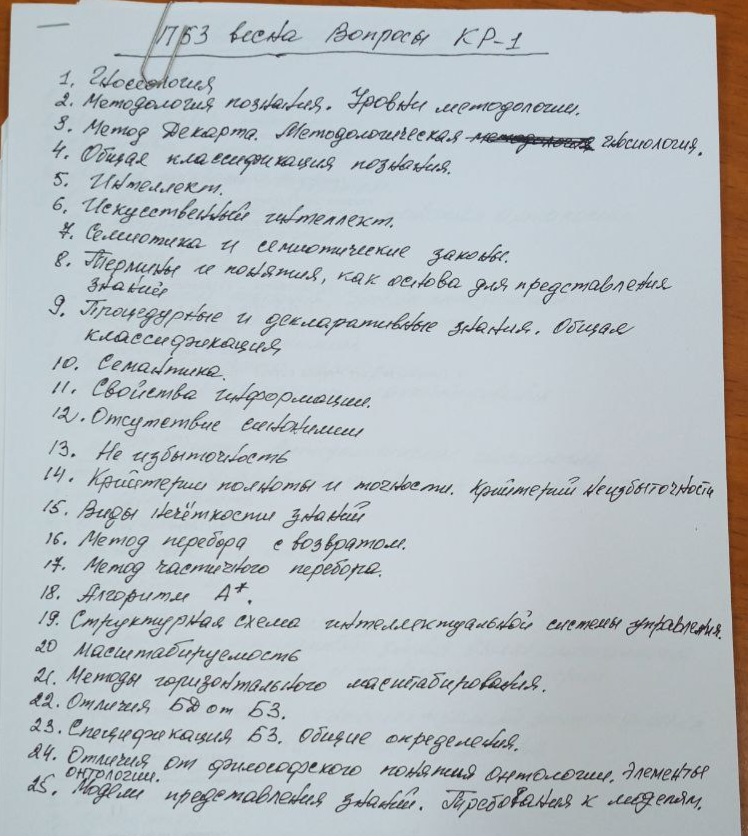 ПБЗ весна Вопросы КР-1
1. Гносеология
2. Методология познания. Уровни методологии.
3. Метод Декарта. Методологическая гносиология.
4. Общая классификация познания.
5. Интеллект.
6. Искусственный интеллект.
7. Семиотика и семиотические законы.
8. Термины и понятия, как основа для представления
знаний
9. Процедурные и декларативные знания. Общая
классификация
10. Семантика.
11. Свойства информации.
12. Отсутствие синонимии
13. Не избыточность
14. Критерии полноты и точности. Критерий неизбыточности
15. Виды нечёткости знаний
16. Метод перебора с возвратом.
17. Метод частичного перебора.
18. Алгоритм А*.
19. Структурная схема интеллектуальной системы управления.
20 Масштабируемость
21. Методы горизонтального масштабирования.
22. Отличия БД от БЗ.
23. Спецификация БЗ. Общие определения.
24. Отличия от философского понятия онтологии. Элементы
онтологии.
25. Модели представления знаний. Требования к моделям.